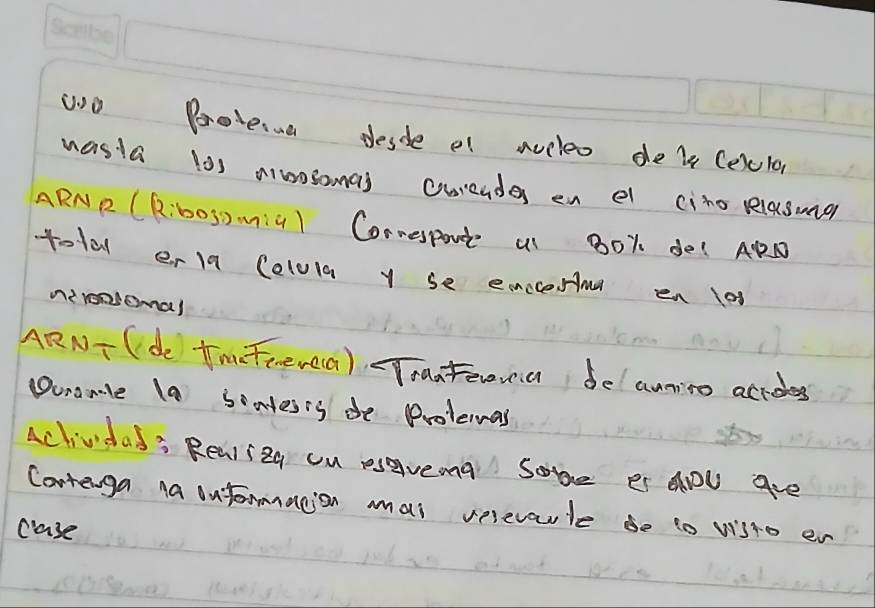 Scribe
una Proteina desde el nucleo de la Celula
hasta los ribosomas ubicados en el citoplasma
ARNR (Ribosomial) Corresponde al 80% del ARN
total en la Celula y se encuentra en los
ribosomas
ARNT (de tranferencia) Tranferencia de amino acidos
Durante la sintesis de Proteinas
Actividad: Realiza un esquema Sobre el ADN que
Contenga la informacion mas relevante de lo visto en
clase